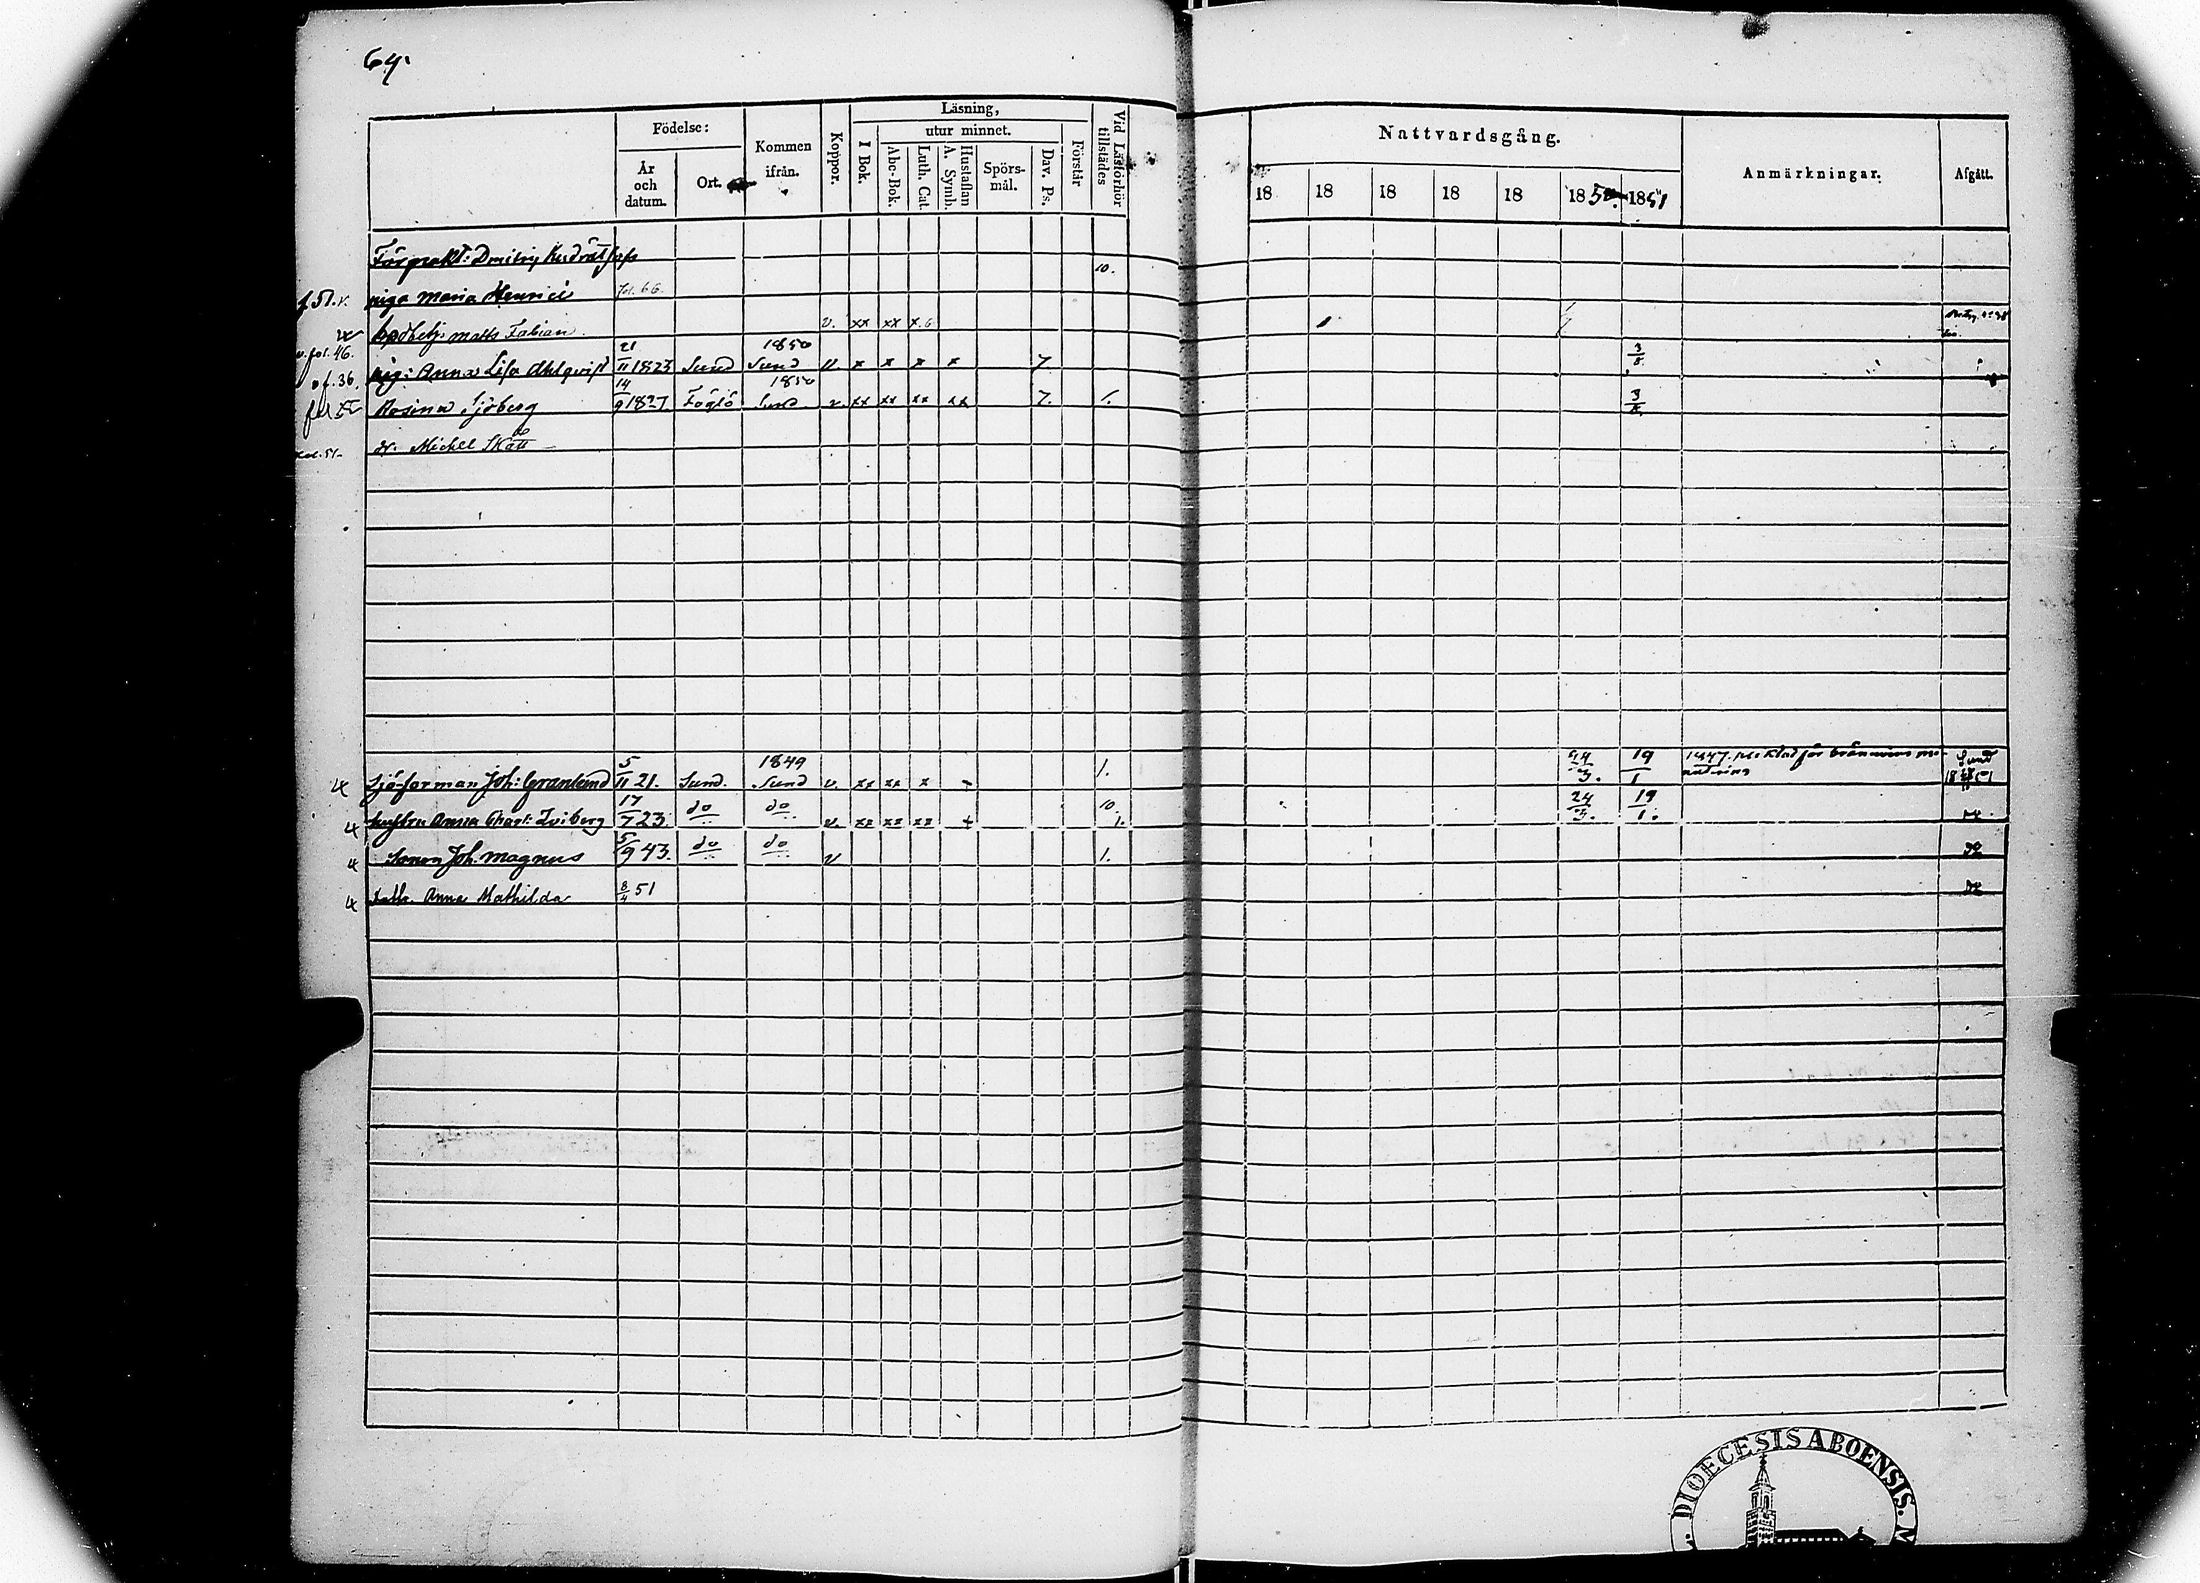 64.
Födelse:
År och datum.
Ort.
Kommen ifrån.
Koppor.
Läsning,
I Bok.
utur minnet.
Abc-Bok.
Luth. Cat.
Hustaflan A. Symb.
Spörs-mål.
Dav. Ps.
Förstår
Vid Läsförhör tillstädes
Nattvardsgång.
18 18 18 18 18 1850. 1851
Anmärkningar.
Afgått.
Förpakt: Dmitrij
10.
f. 51. v. piga Maria Henrici fol. 66.
Matts Fabian v. xx xx x
v. fol. 46.
pig: Anna Lisa Ahlqvist 21/11 1823 Sund 1850 Sund v. x x x x 7 3/8
f. 36.
Rosina Sjöberg 14/9 1827. Föglö 1850 Sund v. xx xx xx xx 7. 1. 3/8
fol. 51 dr. Michel Skatt
Sjöforman Joh: Granlund 5/11 21. Sund. 1849 Sund v. xx xx x - 1. 24/3. 19/1 1847. för brännvins Sund 1851
hustru Anna Charl: 17/7 23. do do v. xx xx xx + 10. 1. 24/3. 19/1.
Sonen Joh. Magnus 5/9 43. do do v 1.
Dottr. Anna Mathilda 8/4 51
DIOECESIS ABOENSIS. M